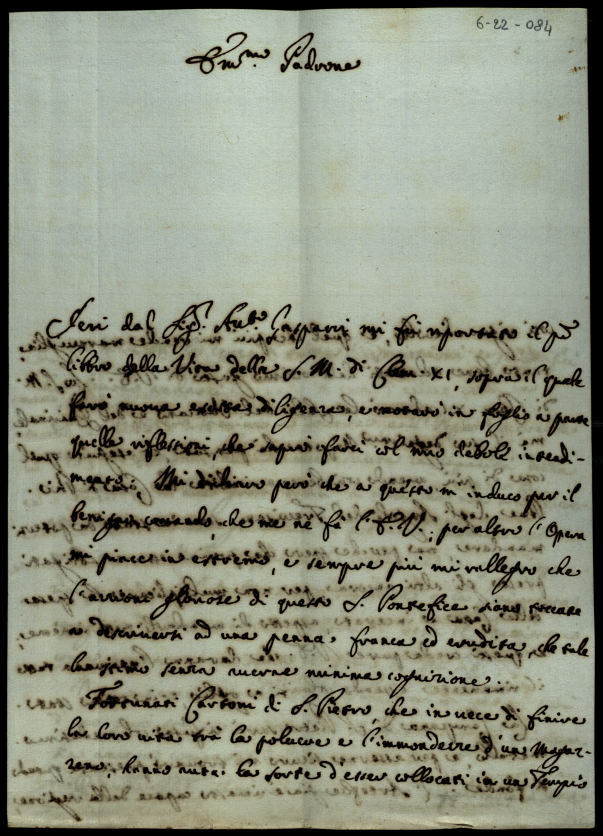 6-22-084
Em.mo Padrone
Ieri dal Sig.r Ab.e Gasparri mi fù riportato il p.o
libbro della Vita della S. M. di Clem. XI, sopra il quale
farò nuova esatta diligenza, e notarò in foglio a parte
quelle riflessioni, che saprò farci col mio debole intendi-
mento. Mi dichiaro però che a questo m'induco per il
benigno comando, che me ne fà l'E.V.; per altro l'Opera
mi piace in estremo, e sempre più mi rallegro che
l'azzioni gloriose di questo S. Pontefice siano toccate
a descriversi ad una penna franca ed erudita, che tale
la stimo senza averne minima cognizione.
Fortunati Cartoni di S. Pietro, che in vece di finire
la loro vita trà la polvere e l'immondezze d'un Magaz-
zeno, hanno avuta la sorte d'esser collocati in un Tempio